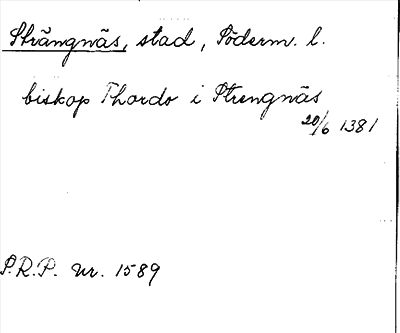 Strängnäs, stad, Söderm. l.
biskop Thordo i Strengnäs
20/6 1381
P.R.P. nr. 1589